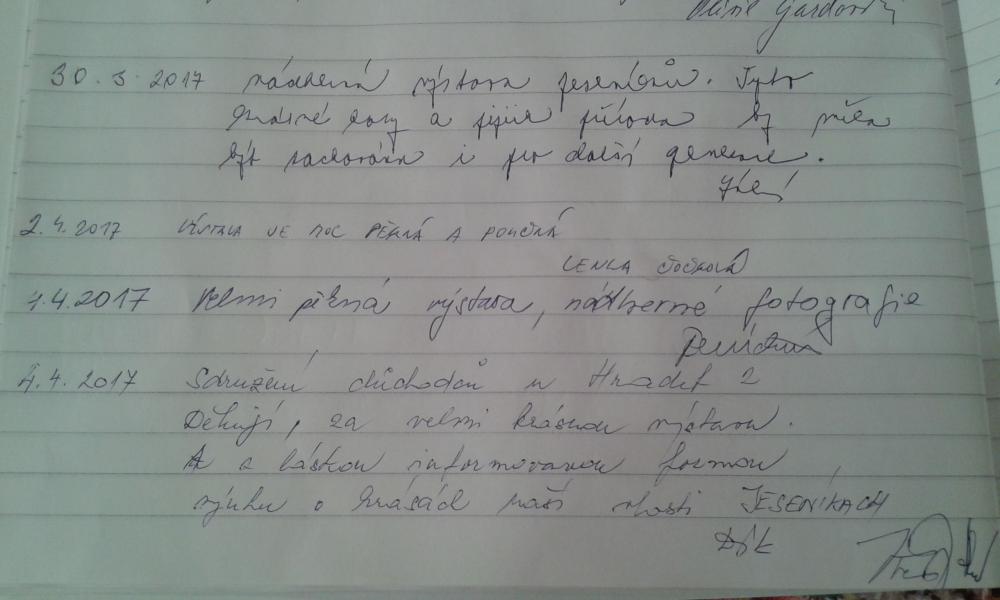 30. 3. 2017 nádherná výstava Jeseníků. Tyto
krásné lesy a jejich příroda by měla
být zachována i pro další generace.
2. 4. 2017 VÝSTAVA JE MOC PĚKNÁ A POUČNÁ
LENKA
4.4.2017 Velmi pěkná výstava, nádherné fotografie
4. 4. 2017 Sdružení důchodců
Děkují, za velmi krásnou výstavu.
A s láskou informovanou formou
o krásách naší vlasti JESENÍKACH
Dík